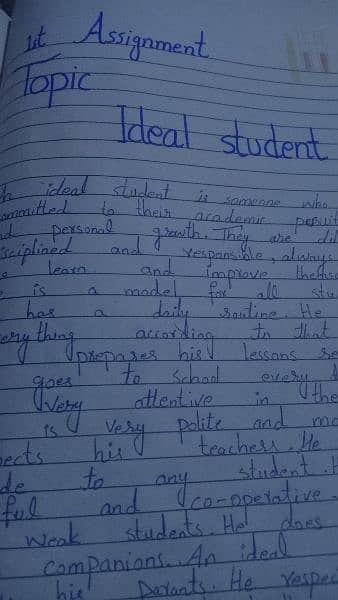 1st Assignment
Topic
Ideal student
ideal student is someone who
to their academic
personal growth. They are
and responsible, always
learn and improve
is a model for all
has a daily routine. He
according to that
prepares his lessons
goes to school every
Very attentive in the
is very polite and
his teachers. He
to any student.
and co-operative.
weak students. He does
companions. An ideal
his parants. He